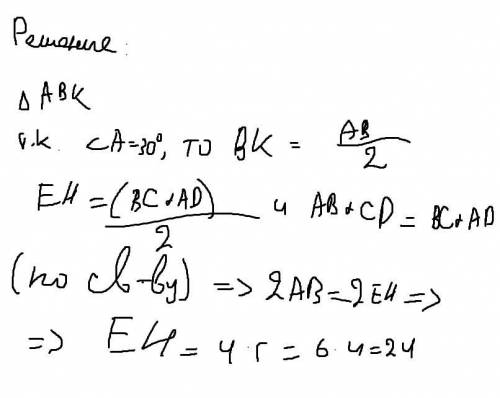 Решение:
Δ ABK
т.к. ∠A=30°, то BK = AB/2
EH = (BC+AD)/2 и AB+CD = BC+AD
(по св-ву) => 2AB=2EH =>
=> EH = 4·r = 6·4=24